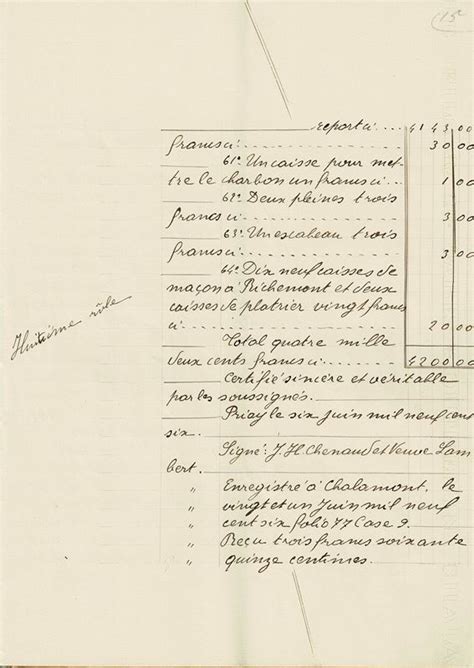 15
report ci : .... 4143 00
francs ci : .... 30 00
61° Un caisse pour met-
tre le charbon un francs ci .... 1 00
62° Deux pleines trois
francs ci : .... 3 00
63° Un escabeau trois
francs ci : .... 3 00
64° Dix neuf caisses de
maçon à Richemont et deux
caisses de platrier vingt francs
ci : .... 20 00
Total quatre mille
deux cents francs ci : .... 4200 00
Certifié sincère et véritable
par les soussignés.
Priay le six juin mil neuf cent
six.
Signé : J. H. Chenaud et Veuve Lam
bert.
" Enregistré à Chalamont, le
" vingt et un Juin mil neuf
" cent six folio 77 Case 9.
" Reçu trois francs soixante
" quinze centimes.
Huitième rôle